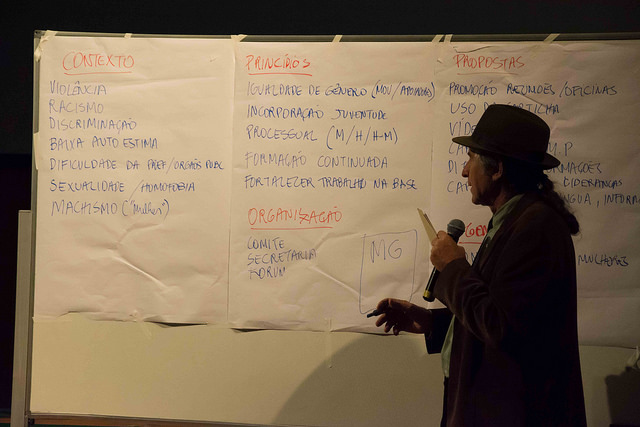 CONTEXTO
VIOLÊNCIA
RACISMO
DISCRIMINAÇÃO
BAIXA AUTO ESTIMA
DIFICULDADE DA PREF/ORGÃOS PUBL
SEXUALIDADE /HOMOFOBIA
MACHISMO ("Mulher")
PRINCÍPIOS
IGUALDADE DE GÊNERO
INCORPORAÇÃO JUVENTUDE
PROCESSUAL (M/H/H-M)
FORMAÇÃO CONTINUADA
FORTALEZER TRABALHO NA BASE
ORGANISZAÇÃO
COMITE
SECRETARIA
FORUM
MG
PROPOSTAS
PROMOÇÃO REUNIÕES/OFICINAS
USO
LIDERANÇAS